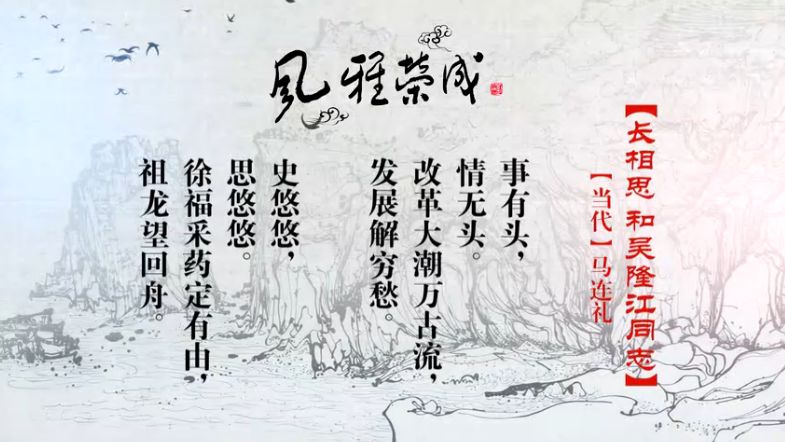 風雅荣成
【长相思 和吴隆江同志】
【当代】马连礼
事有头，
情无头。
改革大潮万古流，
发展解穷愁。
史悠悠，
思悠悠。
徐福采药定有由，
祖龙望回舟。